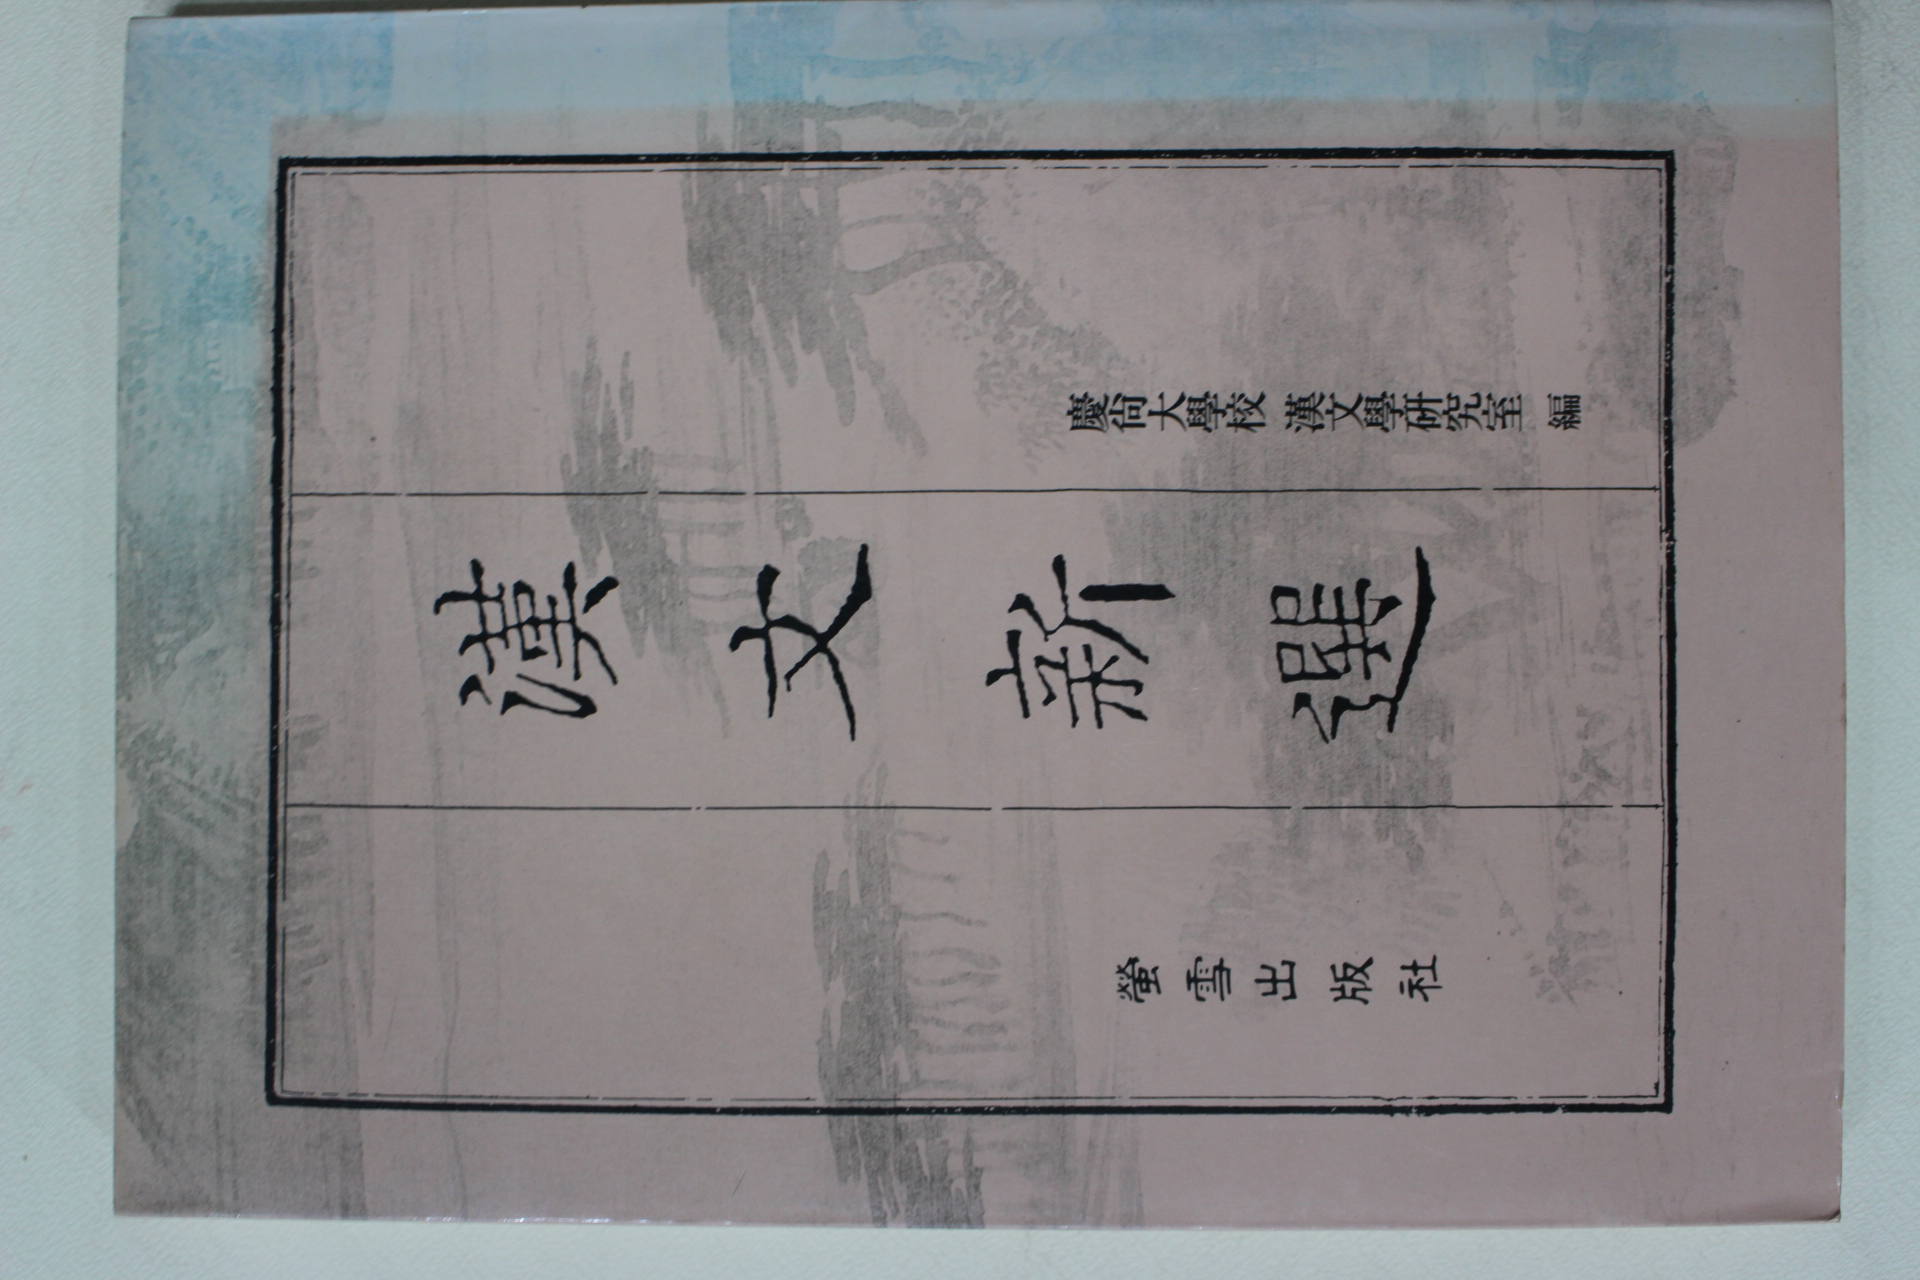 慶尙大學校 漢文學硏究室 編
漢文新選
螢雪出版社